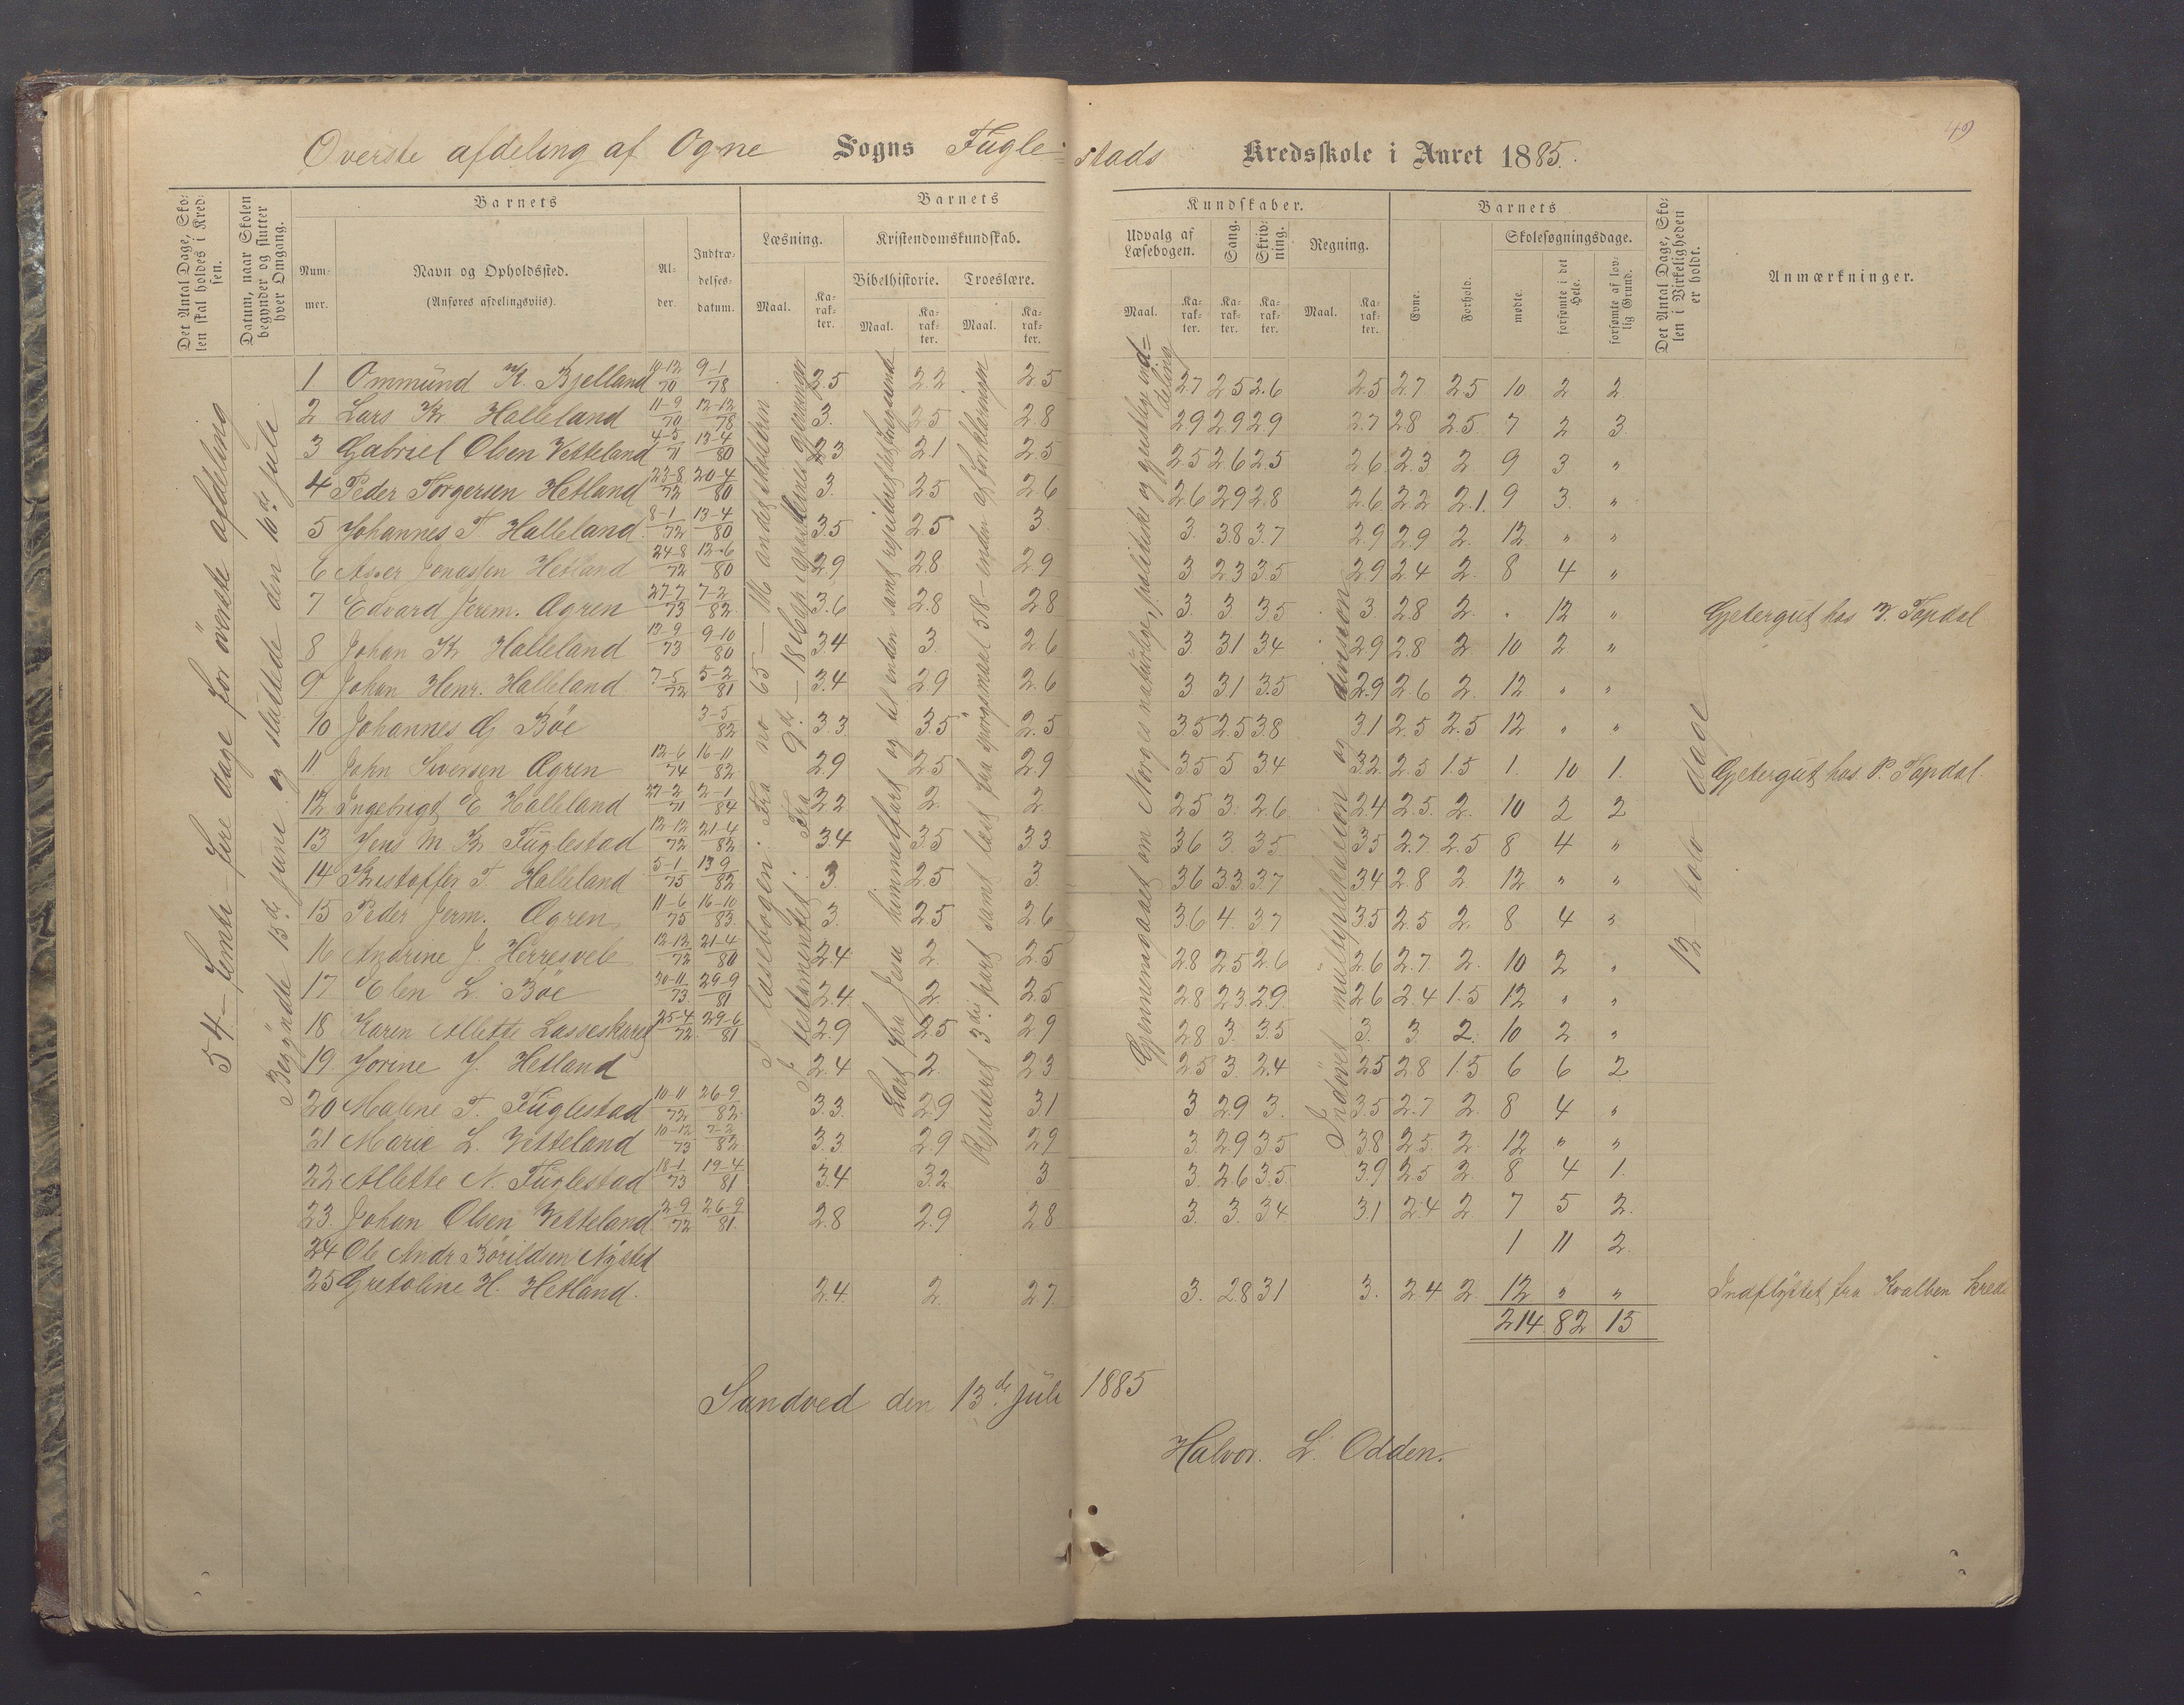 49
Överste afdeling af Ogne Sogns Fugle-stads Kredsskole i Aaret 1885.
Det Antal Dage, Skolen skal holdes i Kredsen.
Datum, naar Skolen begynder og slutter hver Omgang.
Barnets
Nummer.
Navn og Opholdssted.
(Anføres afdelingsviis).
Alder.
Indtrædelsesdatum.
Barnets Kundskaber.
Læsning.
Maal.
Karakter.
Kristendomskundskab.
Bibelhistorie.
Maal.
Karakter.
Troeslære.
Maal.
Karakter.
Udvalg af Læsebogen.
Maal.
Karakter.
Sang.
Karakter.
Skrivning.
Karakter.
Regning.
Maal.
Karakter.
Barnets
Evne.
Forhold.
Skolesøgningsdage.
mødte.
forsømte i det Hele.
forsømte af lovlig Grund.
Det Antal Dage, Skolen i Virkeligheden er holdt.
Anmærkninger.
54 – femti fire dage for överste afdeling
Begÿndte 15de juni og sluttede den 10de juli
I læsebogen: Fra no 65
I testamentet: Fra
Lært fra Jesu himmelfart og til enden samt
Gjennemgaaet om Norges naturlige, politiske og geistlige inddeling
Indövet multiplikation og division
12 – tolv – dage
1 Ommund K. Bjelland 10-12/70 9-1/78 2.5 2.2 2.5 2.7 2.5 2.6 2.5 2.7 2.5 10 2 2
2 Lars K Halleland 11-9/70 12-12/78 3. 2.5 2.8 2.9 2.9 2.9 2.7 2.8 2.5 7 2 3
3 Gabriel Olsen Vetteland 4-5/71 13-4/80 2.3 2.1 2.5 2.5 2.6 2.5 2.6 2.3 2 9 3 "
4 Peder Torgersen Hetland 23-8/72 20-4/80 3. 2.5 2.6 2.6 2.9 2.8 2.6 2.2 2.1. 9 3. "
5 Johannes T Halleland 8-1/72 13-4/80 3.5 2.5 3. 3. 3.8 3.7 2.9 2.9 2. 12 " "
6 Jonassen Hetland 24-8/72 12-6/80 2.9 2.8 2.9 3 2.3 3.5 2.9 2.4 2. 8 4 "
7 Edvard Jerem. Ogren 27-7/73 7-2/82 3.6 2.8 2.8 3. 3 3.5 3. 2.8 2. . 12 " Gjetergut hos T. Topdal
8 Johan K Halleland 13-9/73 9-10/80 3.4 3. 2.6 3 3.1 3.4 2.9 2.8 2. 10 2 "
9 Johan Henr. Halleland 7-5/72 5-2/81 3.4 2.9 2.6 3 3.1 3.5 2.9 2.6 2. 12 " "
10 Johannes G Böe 3-5/82 3.3 3.5 2.5 3.5 2.5 3.8 3.1 2.5 2.5 12 " "
11 John Siversen Ogren 12-6/74 16-11/82 2.9 2.5 2.9 3.5 5 3.4 3.2 2.5 1.5 1. 10 1. Gjetergut hos P. Topdal
12 Ingebrigt E Halleland 27-2/71 2-1/84 2.2 2. 2. 2.5 3. 2.6 2.4 2.5. 2. 10 2 2
13 Jens M. K Fuglestad 12-12/72 21-4/82 3.4 3.5 3.3 3.6 3. 3.5 3.5 2.7. 2.5 8 4 "
14 Kristoffer T Halleland 5-1/75 13-9/82 3. 2.5 3. 3.6 3.3 3.7 3.4 2.8 2. 12 " "
15 Peder Jerm. Ogren 11-6/75 16-10/83 3. 2.5 2.6 3.6 4. 3.7 3.5 2.5 2. 8 4 "
16 Andrine J. 12-12/72 21-4/80 2.4 2. 2.5 2.8 2.5 2.6 2.6 2.7 2. 10 2 "
17 Elen L. Böe 30-11/73 29-9/81 2.4 2. 2.5 2.8 2.3 2.9. 2.6 2.4 1.5 12 " "
18 Karen Alette 25-4/72 29-6/81 2.9 2.5 2.9 2.8 3. 3.5 3. 3. 2. 10 2 "
19. Jorine J. Hetland 2.4 2. 2.3 2.5 3. 2.4 2.5 2.8 1.5 6 6 2
20 Malene T. Fuglestad 10-11/72 26-9/82 3.3. 2.9 3.1 3 2.9 3. 3.5 2.7 2. 8 4 "
21 Marie L. Vetteland 10-12/73 7-2/82 3.3. 2.9 2.9 3. 2.9 3.5 3.8 2.5 2. 12 " "
22 Alette N. Fuglestad 18-1/73 19-4/81 3.4 3.2 3 3. 2.6 3.5. 3.9 2.5 2. 8 4 1.
23. Johan Olsen Vetteland 2-9/72 26-9/81 2.8 2.9 2.8 3. 3. 3.4 3.1 2.4 2 7 5 2.
24 Ole Andr Nÿsted 1 11 2.
25 Gretoline H. Hetland. 2.4. 2. 2.7. 3. 2.8 3.1 3. 2.4 2. 12 " " Indflÿttet fra Kvalben kreds
214. 82 15
Sandved den 13de juli 1885
Halvor. L. Odden.